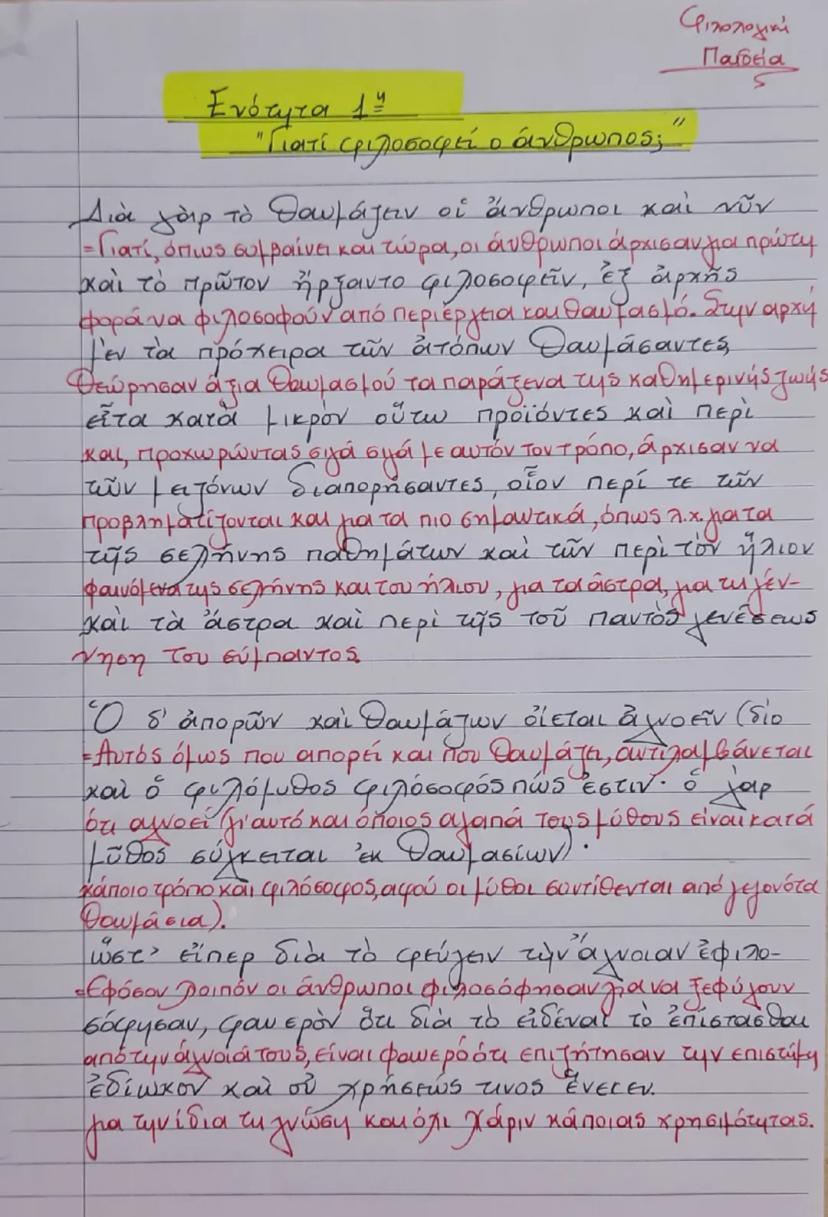 Φιλολογική
Παιδεία
Ενότητα 1η
"Γιατί φιλοσοφεί ο άνθρωπος;"
Διὰ γὰρ τὸ θαυμάζειν οἱ ἄνθρωποι καὶ νῦν
=Γιατί, όπως συμβαίνει και τώρα, οι άνθρωποι άρχισαν για πρώτη
καὶ τὸ πρῶτον ἤρξαντο φιλοσοφεῖν, ἐξ ἀρχῆς
φορά να φιλοσοφούν από περιέργεια και θαυμασμό. Στην αρχή
μὲν τὰ πρόχειρα τῶν ἀτόπων θαυμάσαντες,
θεώρησαν άξια θαυμασμού τα παράξενα της καθημερινής ζωής
εἶτα κατὰ μικρὸν οὕτω προϊόντες καὶ περὶ
και, προχωρώντας σιγά σιγά με αυτόν τον τρόπο, άρχισαν να
τῶν μειζόνων διαπορήσαντες, οἷον περί τε τῶν
προβληματίζονται και για τα πιο σημαντικά, όπως λ.χ. για τα
τῆς σελήνης παθημάτων καὶ τῶν περὶ τὸν ἥλιον
φαινόμενα της σελήνης και του ήλιου, για τα άστρα, για τη γέν-
καὶ τὰ ἄστρα καὶ περὶ τῆς τοῦ παντὸς γενέσεως
νηση του σύμπαντος.
Ὁ δ' ἀπορῶν καὶ θαυμάζων οἴεται ἀγνοεῖν (διὸ
=Αυτός όμως που απορεί και που θαυμάζει, αντιλαμβάνεται
καὶ ὁ φιλόμυθος φιλόσοφός πώς ἐστιν· ὁ γὰρ
ότι αγνοεί (γι'αυτό και όποιος αγαπά τους μύθους είναι κατά
μῦθος σύγκειται ἐκ θαυμασίων)·
κάποιο τρόπο και φιλόσοφος, αφού οι μύθοι συντίθενται από γεγονότα
θαυμάσια).
ὥστ' εἴπερ διὰ τὸ φεύγειν τὴν ἄγνοιαν ἐφιλο-
=Εφόσον λοιπόν οι άνθρωποι φιλοσόφησαν για να ξεφύγουν
σόφησαν, φανερὸν ὅτι διὰ τὸ εἰδέναι τὸ ἐπίστασθαι
από την άγνοιά τους, είναι φανερό ότι επιζήτησαν την επιστήμη
ἐδίωκον καὶ οὐ χρήσεώς τινος ἕνεκεν.
για την ίδια τη γνώση και όχι χάριν κάποιας χρησιμότητας.